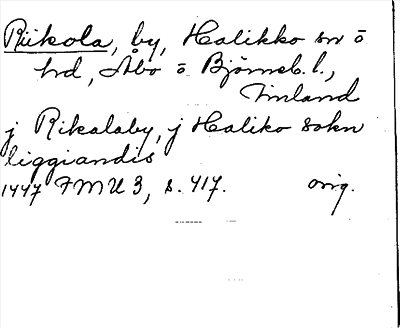 Riikola, by, Halikko sn o
hd, Åbo o Björneb. l.,
Finland
j Rikalaby, j Haliko sokn
liggiandis
1447 FMU 3, s. 417. orig.